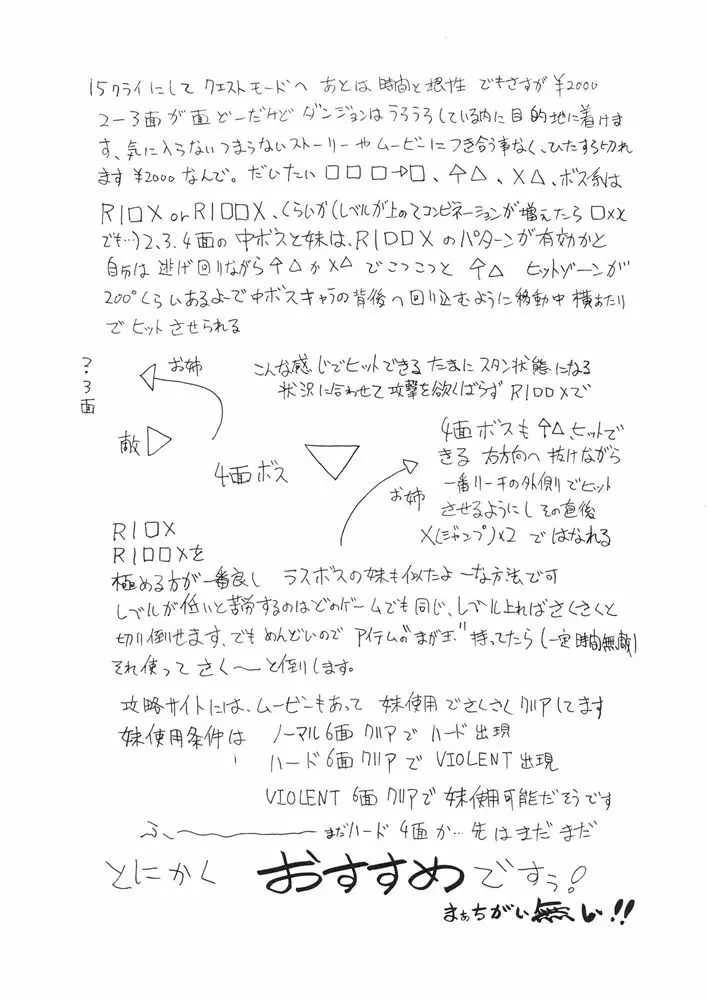 15クライにして クエストモードへ あとは 時間と根性 でもさすが ¥2000
2ー3面が面どーだけど ダンジョンはうろうろしている内に目的地に着けま
す、気に入らないつまらないストーリーやムービーにつき合う事なく、ひたすら切れ
ます ¥2000 なんで。だいたい □□□→□、↑△、×△、ボス系は
R1□X or R1□□X、くらいか(レベルが上がってコンビネーションが増えたら □××
でも…)2、3、4面の中ボスと妹は、R1□□Xのパターンが有効かと
自分は 逃げ回りながら ↑△か×△でこつこつと ↑△ ヒットゾーンが
200°くらいあるよーで中ボスキャラの背後へ回り込むように移動中 横あたり
でヒットさせられる
?.3面
お姉
敵
こんな感じでヒットできる たまにスタン状態になる
状況に合わせて攻撃を欲ばらず R1□□Xで
4面ボス
お姉
4面ボスも ↑△、ヒットで
きる 右方向へ 抜けながら
一番リーチの外側でヒット
させるようにし その直後
X(ジャンプ)×2 ではなれる
R1□X
R1□□Xを
極める方が一番良し ラスボスの妹も似たよーな方法で可
レベルが低いと苦労するのはどのゲームでも同じ、レベル上ればさくさくと
切り倒せます、でもめんどいので アイテムの"まが玉"持ってたら(一定時間無敵)
それ使って さく〜っと倒します。
攻略サイトには、ムービーもあって 妹使用でさくさくクリアしてます
妹使用条件は ノーマル6面クリアでハード出現
ハード6面クリアで VIOLENT 出現
VIOLENT 6面クリアで 妹使用可能だそうです
ふぃ〜 まだハード 4面か… 先はまだまだ
とにかく おすすめですぅ!
まぁちがい無し!!